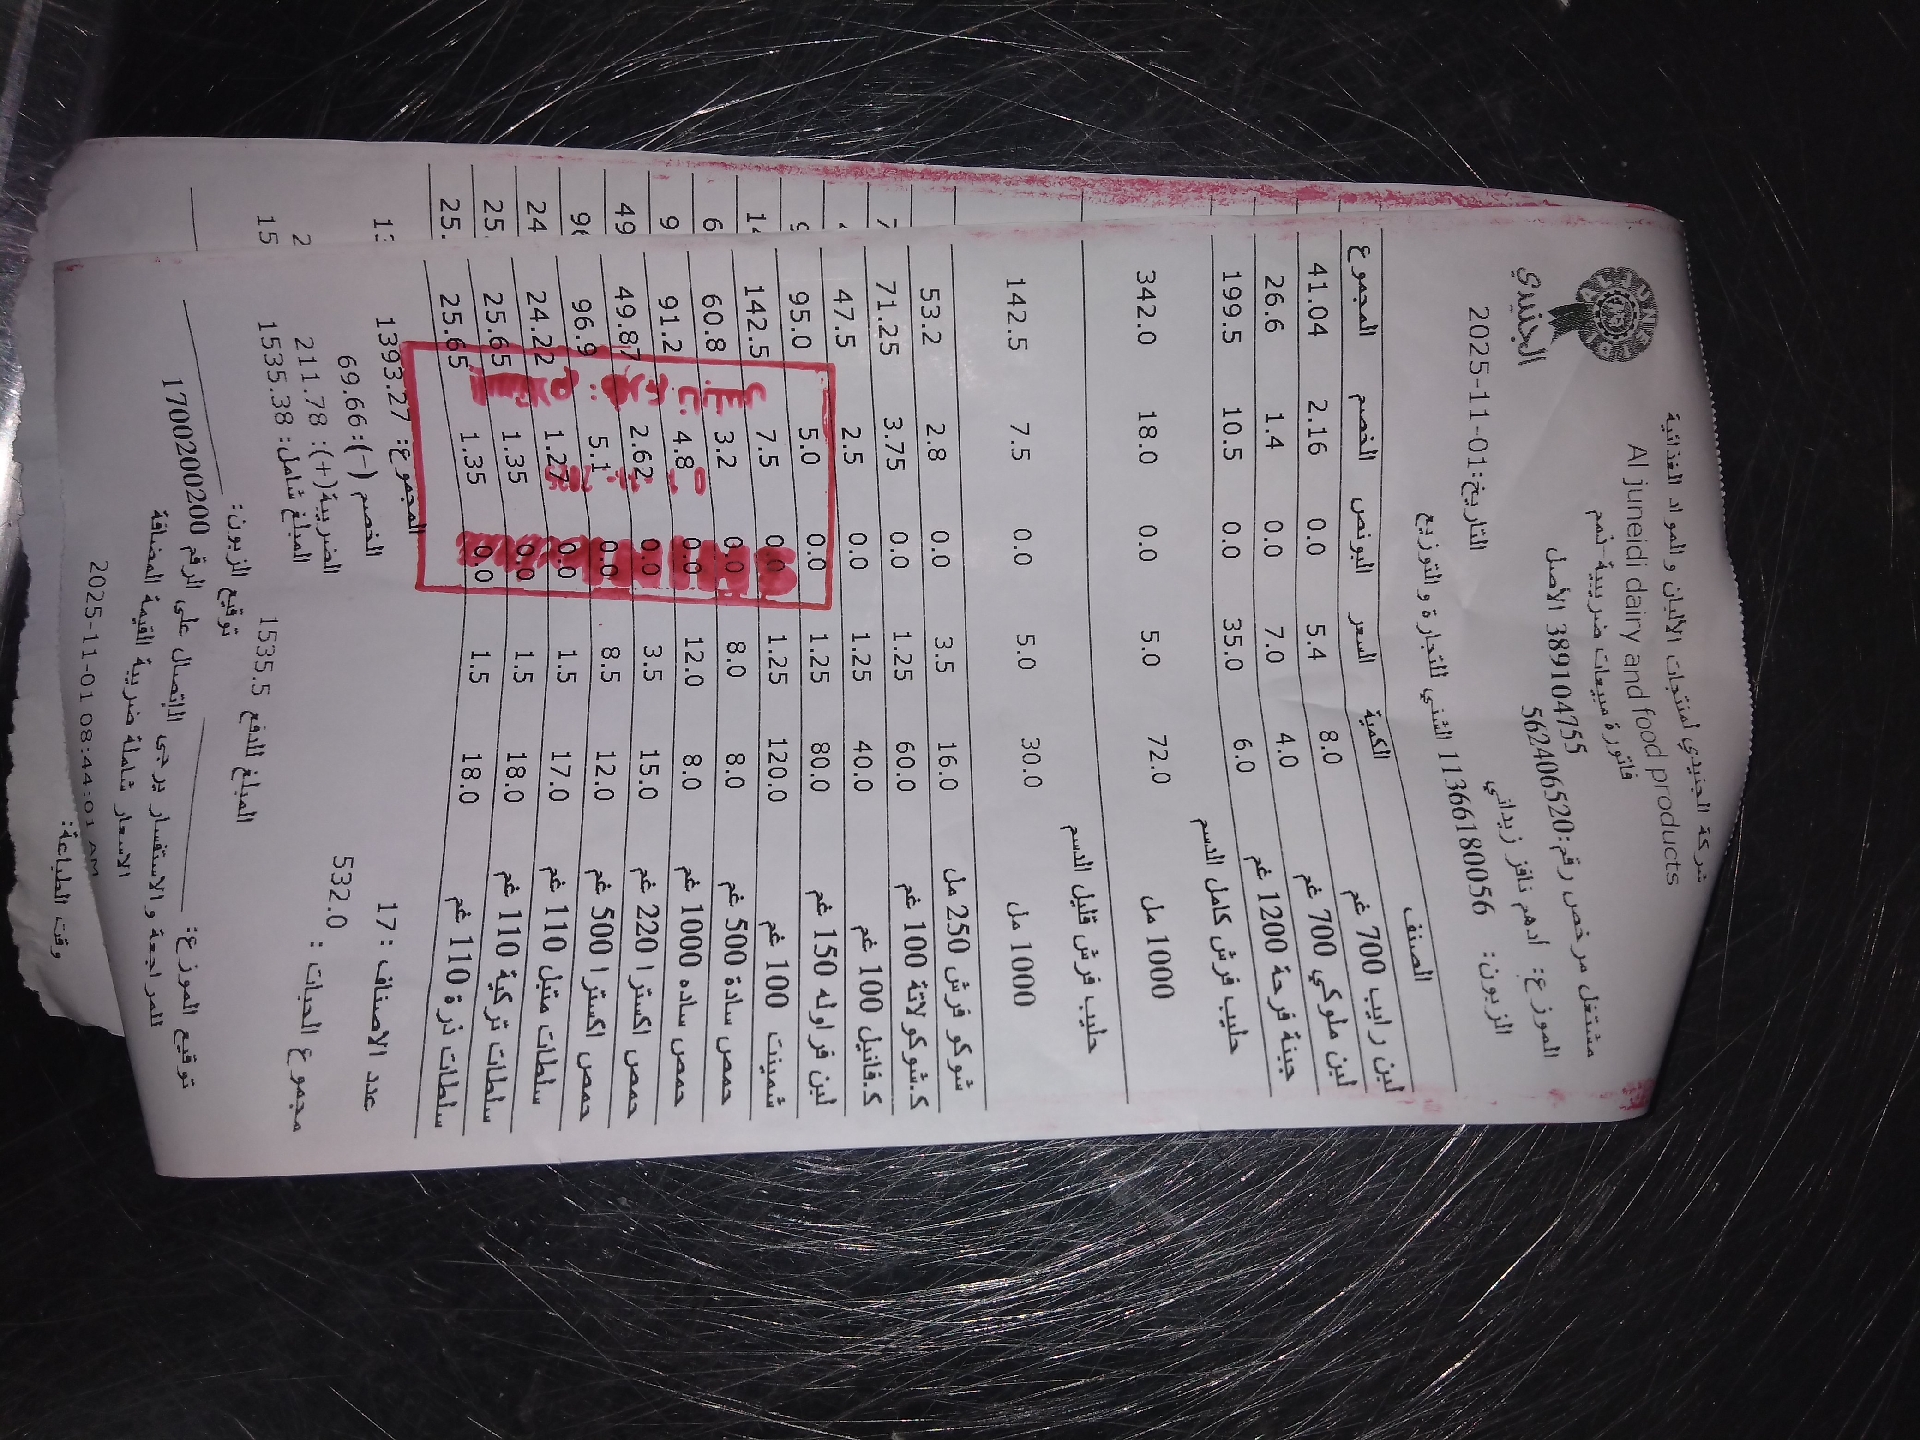 الجنيدي
شركة الجنيدي لمنتجات الألبان و المواد الغذائية
Al juneidi dairy and food products
فاتورة مبيعات ضريبية-نمم
مشتغل مرخص رقم:562406520
389104755 الأصل
الموزع: ادهم نافز زيداني
التاريخ:2025-11-01
الزبون: 11366180056 الشني للتجارة و التوزيع
الصنف الكمية السعر البونص الخصم المجموع
لبن رايب 700 غم 8.0 5.4 0.0 2.16 41.04
لبن ملوكي 700 غم 4.0 7.0 0.0 1.4 26.6
جبنة فرحة 1200 غم 6.0 35.0 0.0 10.5 199.5
حليب فرش كامل الدسم
1000 مل 72.0 5.0 0.0 18.0 342.0
حليب فرش قليل الدسم
1000 مل 30.0 5.0 0.0 7.5 142.5
شوكو فرش 250 مل 16.0 3.5 0.0 2.8 53.2
ك.شوكولاتة 100 غم 60.0 1.25 0.0 3.75 71.25
ك.فانيل 100 غم 40.0 1.25 0.0 2.5 47.5
لبن فراوله 150 غم 80.0 1.25 0.0 5.0 95.0
شمينت 100 غم 120.0 1.25 0.0 7.5 142.5
حمص سادة 500 غم 8.0 8.0 0.0 3.2 60.8
حمص ساده 1000 غم 8.0 12.0 0.0 4.8 91.2
حمص اكسترا 220 غم 15.0 3.5 0.0 2.62 49.87
حمص اكسترا 500 غم 12.0 8.5 0.0 5.1 96.9
سلطات متبل 110 غم 17.0 1.5 0.0 1.27 24.22
سلطات تركية 110 غم 18.0 1.5 0.0 1.35 25.65
سلطات ذرة 110 غم 18.0 1.5 0.0 1.35 25.65
عدد الاصناف : 17 المجموع: 1393.27
الخصم (-): 69.66
مجموع الحبات : 532.0 الضريبة(+): 211.78
المبلغ شامل: 1535.38
المبلغ للدفع 1535.5
توقيع الموزع: توقيع الزبون:
للمراجعة و الاستفسار يرجى الإتصال على الرقم 1700200200
الاسعار شاملة ضريبة القيمة المضافة
وقت الطباعة: 2025-11-01 08:44:01 AM